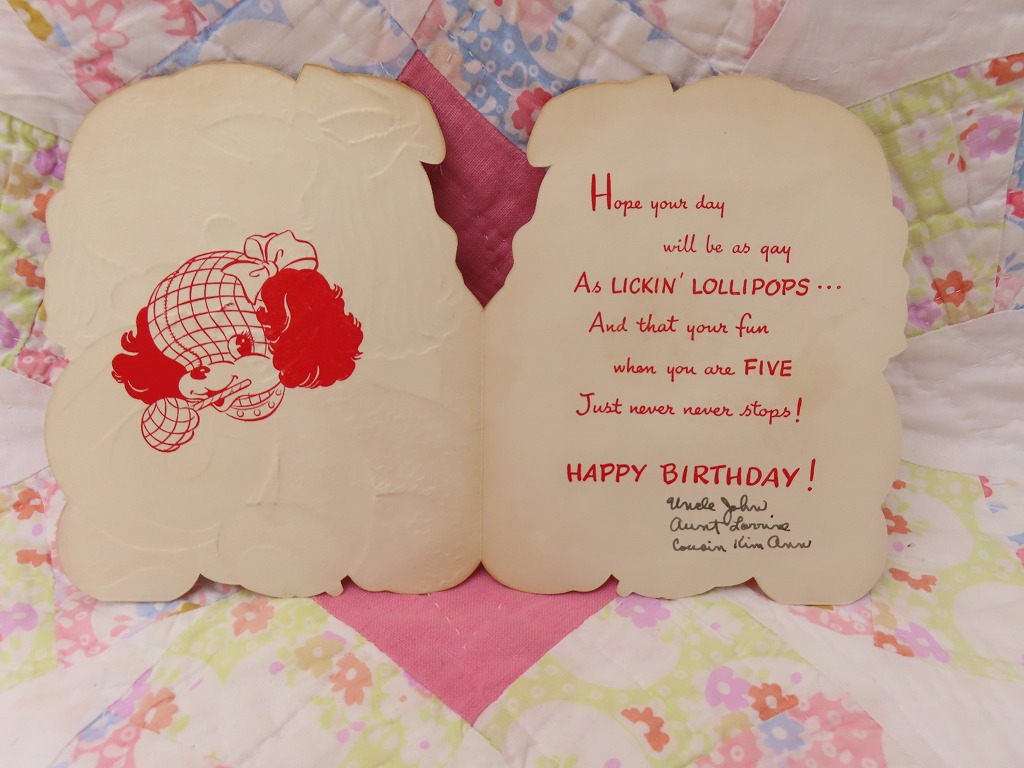 Hope your day
will be as gay
As LICKIN' LOLLIPOPS...
And that your fun
when you are FIVE
Just never never stops!
HAPPY BIRTHDAY!
Uncle John
Aunt Lorrine
Cousin Kim Ann